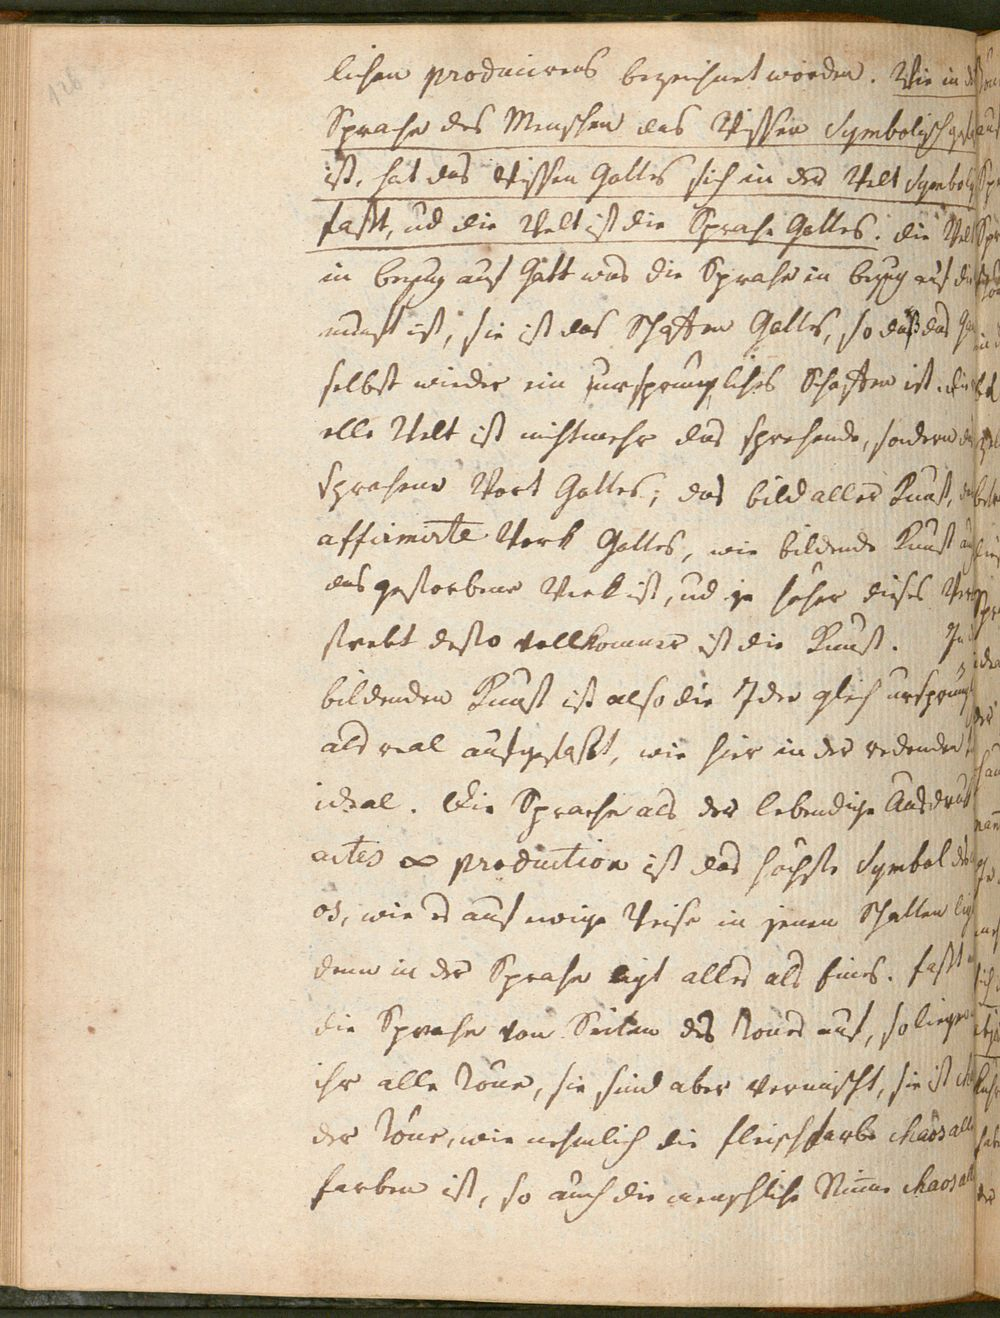 126
lichen producirens bezeichnet worden. Wie in d
Sprache des Menschen das Wissen symbolisch gefa
ist, hat das Wissen Gottes sich in der Welt symboli
faßt, ud die Welt ist die Sprache Gottes. die Welt
in bezug auf Gott was die Sprache in bezug auf die
nunft ist, sie ist das Schaffen Gottes, so daß das Ge
selbst wieder ein ursprüngliches Schaffen ist. die
elle Welt ist nicht mehr das sprechende, sondern da
sprochene Wort Gottes; das bild aller Kunst, da
affirmirte Werk Gottes, wie bildende Kunst au
das gestorbene Werk ist, ud je höher dieses Wer
strebt desto vollkommner ist die Kunst. In
bildenden Kunst ist also die Idee gleich ursprüngl
als real aufgefaßt, wie hier in der redenden
ideal. Die Sprache als der lebendige Ausdruk
actes ∞ production ist das höchste Symbol des
os, wie es auf ewige Weise in jenem Schaffen lig
denn in der Sprache ligt alles als Eines. faßt
die Sprache von Seiten des Tones auf, so liegen
ihr alle Töne, sie sind aber vermischt, sie ist ch
der Töne, wie nehmlich die fleischfarbe chaos alle
farben ist, so auch die menschliche Stim̅e chaos all